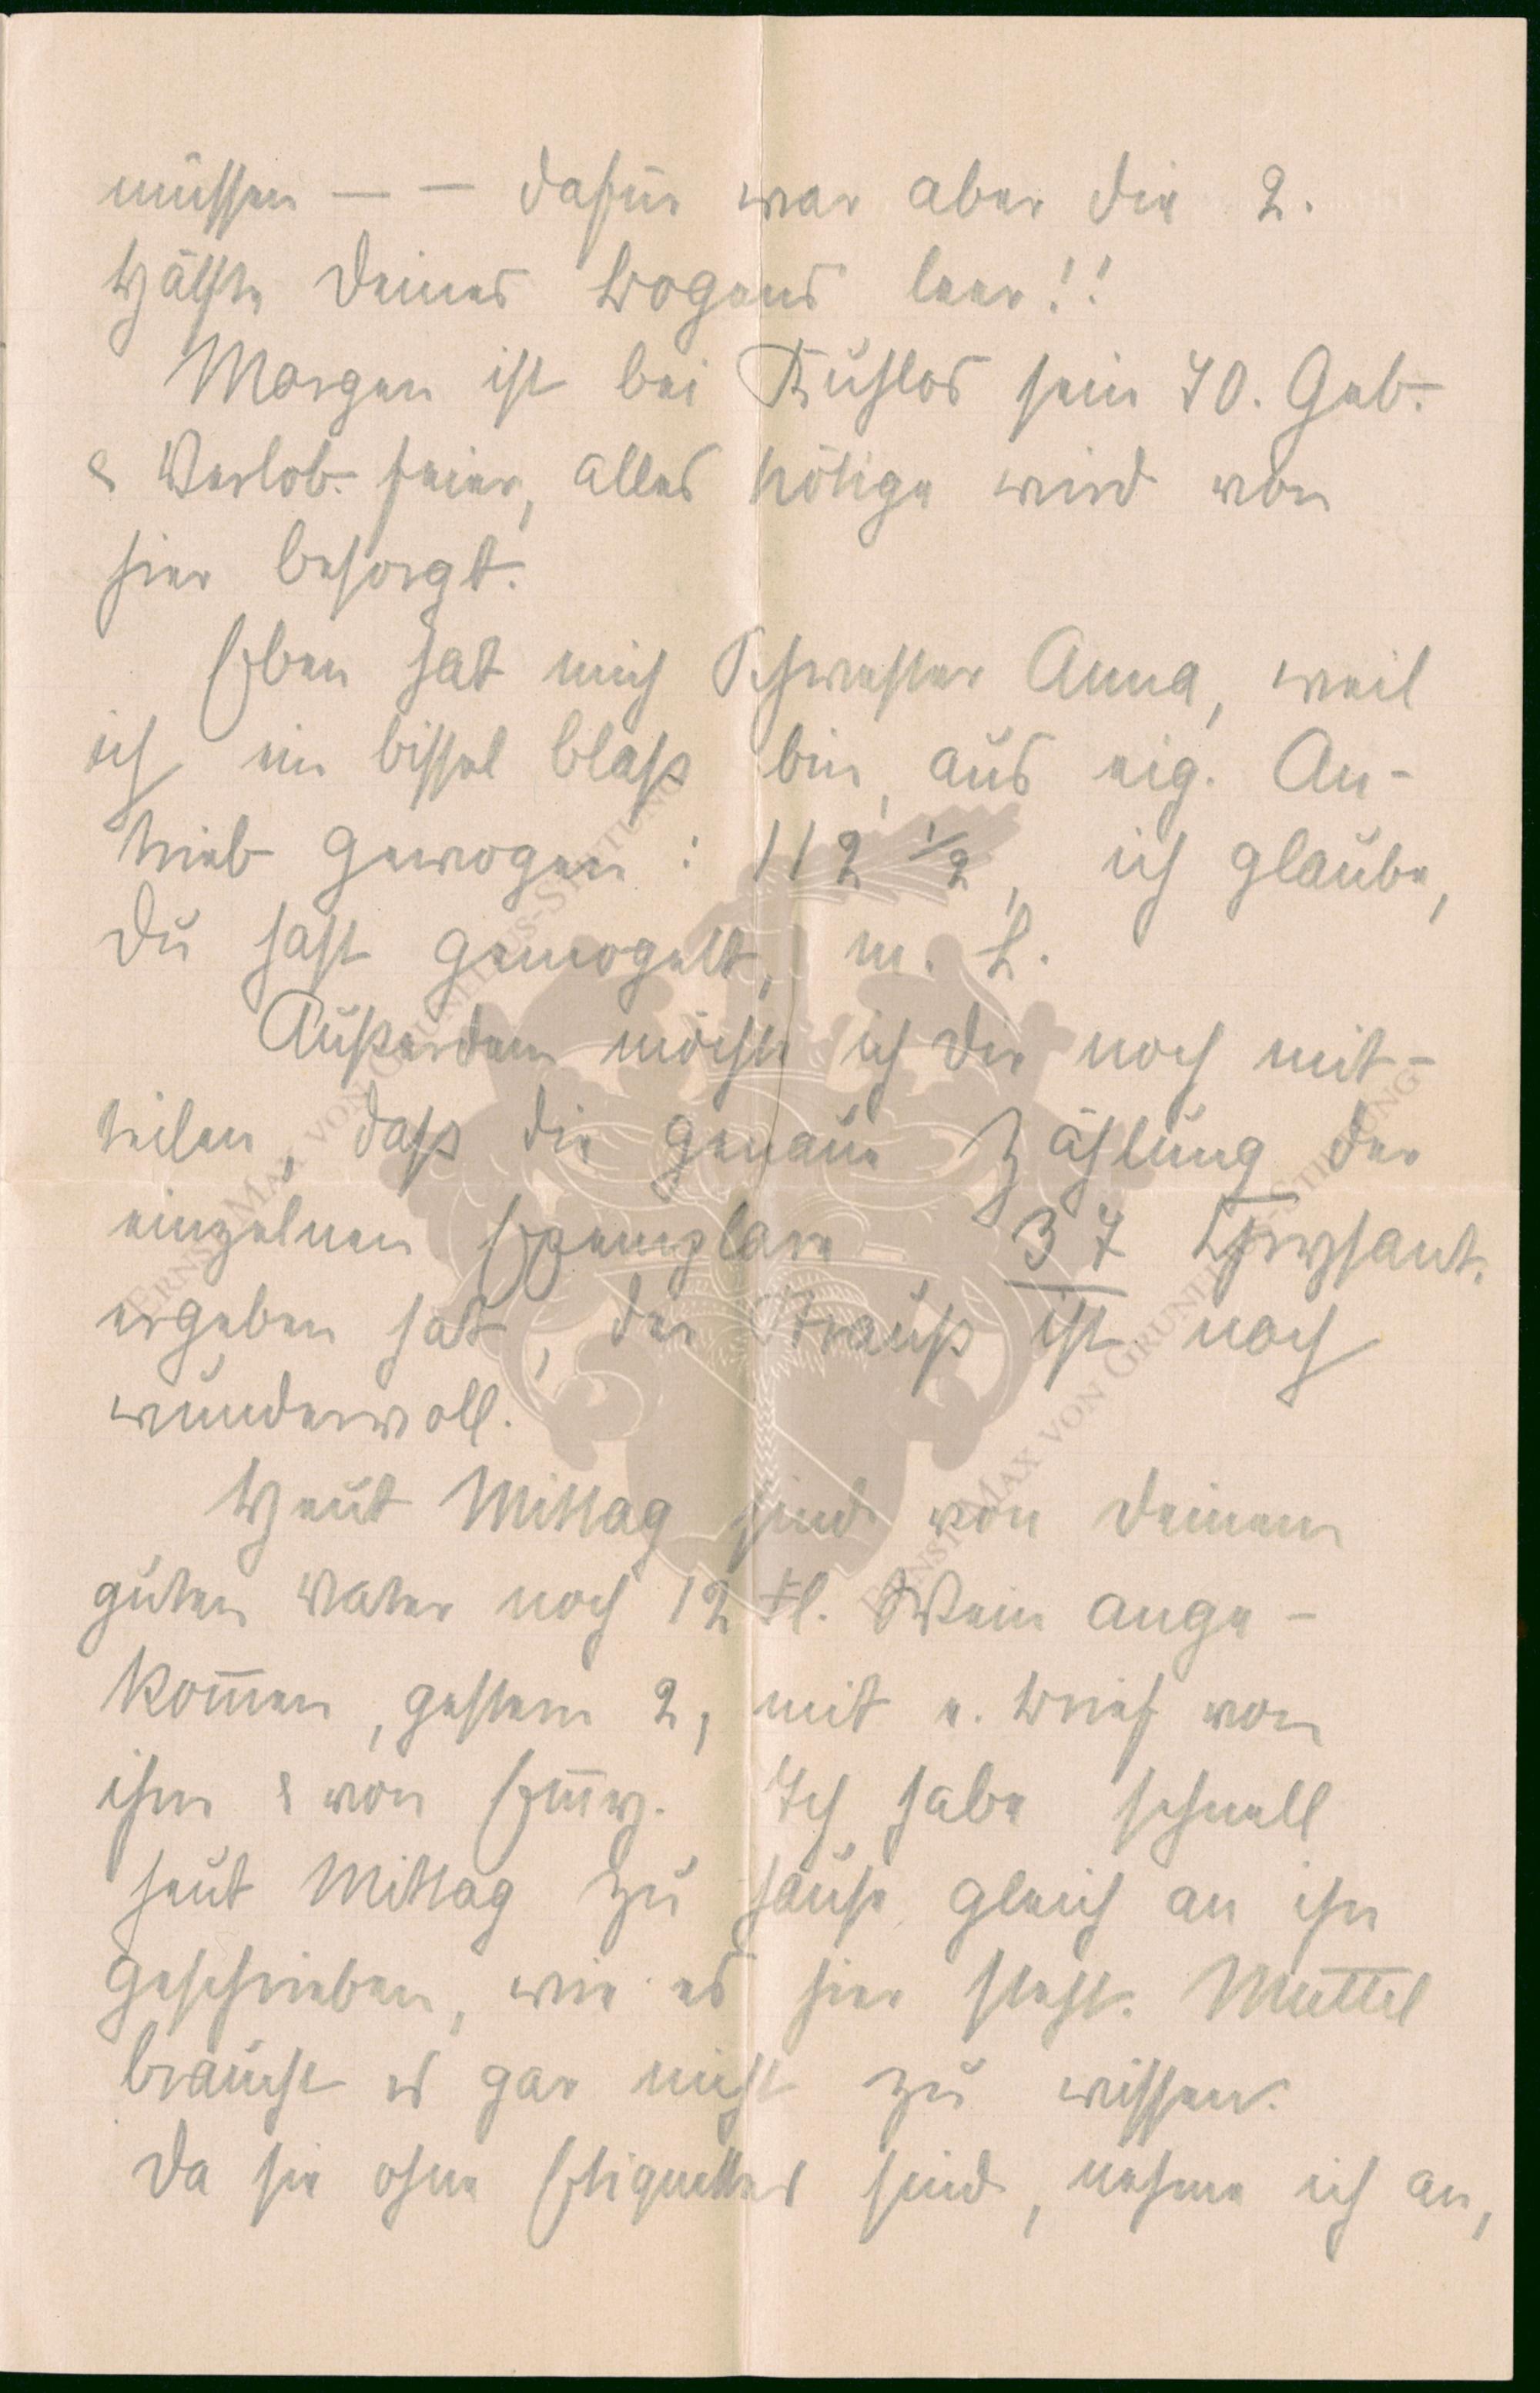 müssen — — dafür war aber die 2.
Hälfte Deines Bogens leer!!
Morgen ist bei Kuhlos sein 70. Geb.-
& Verlob.-feier, alles nötige wird von
hier besorgt.
Eben hat mich Schwester Anna, weil
ich ein bissel blaß bin, aus eig. An-
trieb gewogen: 112 1/2, ich glaube,
Du hast gemogelt, m. L.
Außerdem möchte ich Dir noch mit-
teilen, daß die genaue Zählung der
einzelnen Exemplare 37 Chrysant.
ergeben hat, der Strauß ist noch
wundervoll.
Heut Mittag sind von Deinem
guten Vater noch 12 Fl. Wein ange-
kom̅en, gestern 2, mit e. Brief von
ihm & von Em̅y. Ich habe schnell
heut Mittag zu Hause gleich an ihn
geschrieben, wie es hier steht. Muttel
braucht es gar nicht zu wissen.
Da sie ohne Etiquettes sind, nehme ich an,
ERNST-MAX VON GRUNELIUS-STIFTUNG
ERNST-MAX VON GRUNELIUS-STIFTUNG